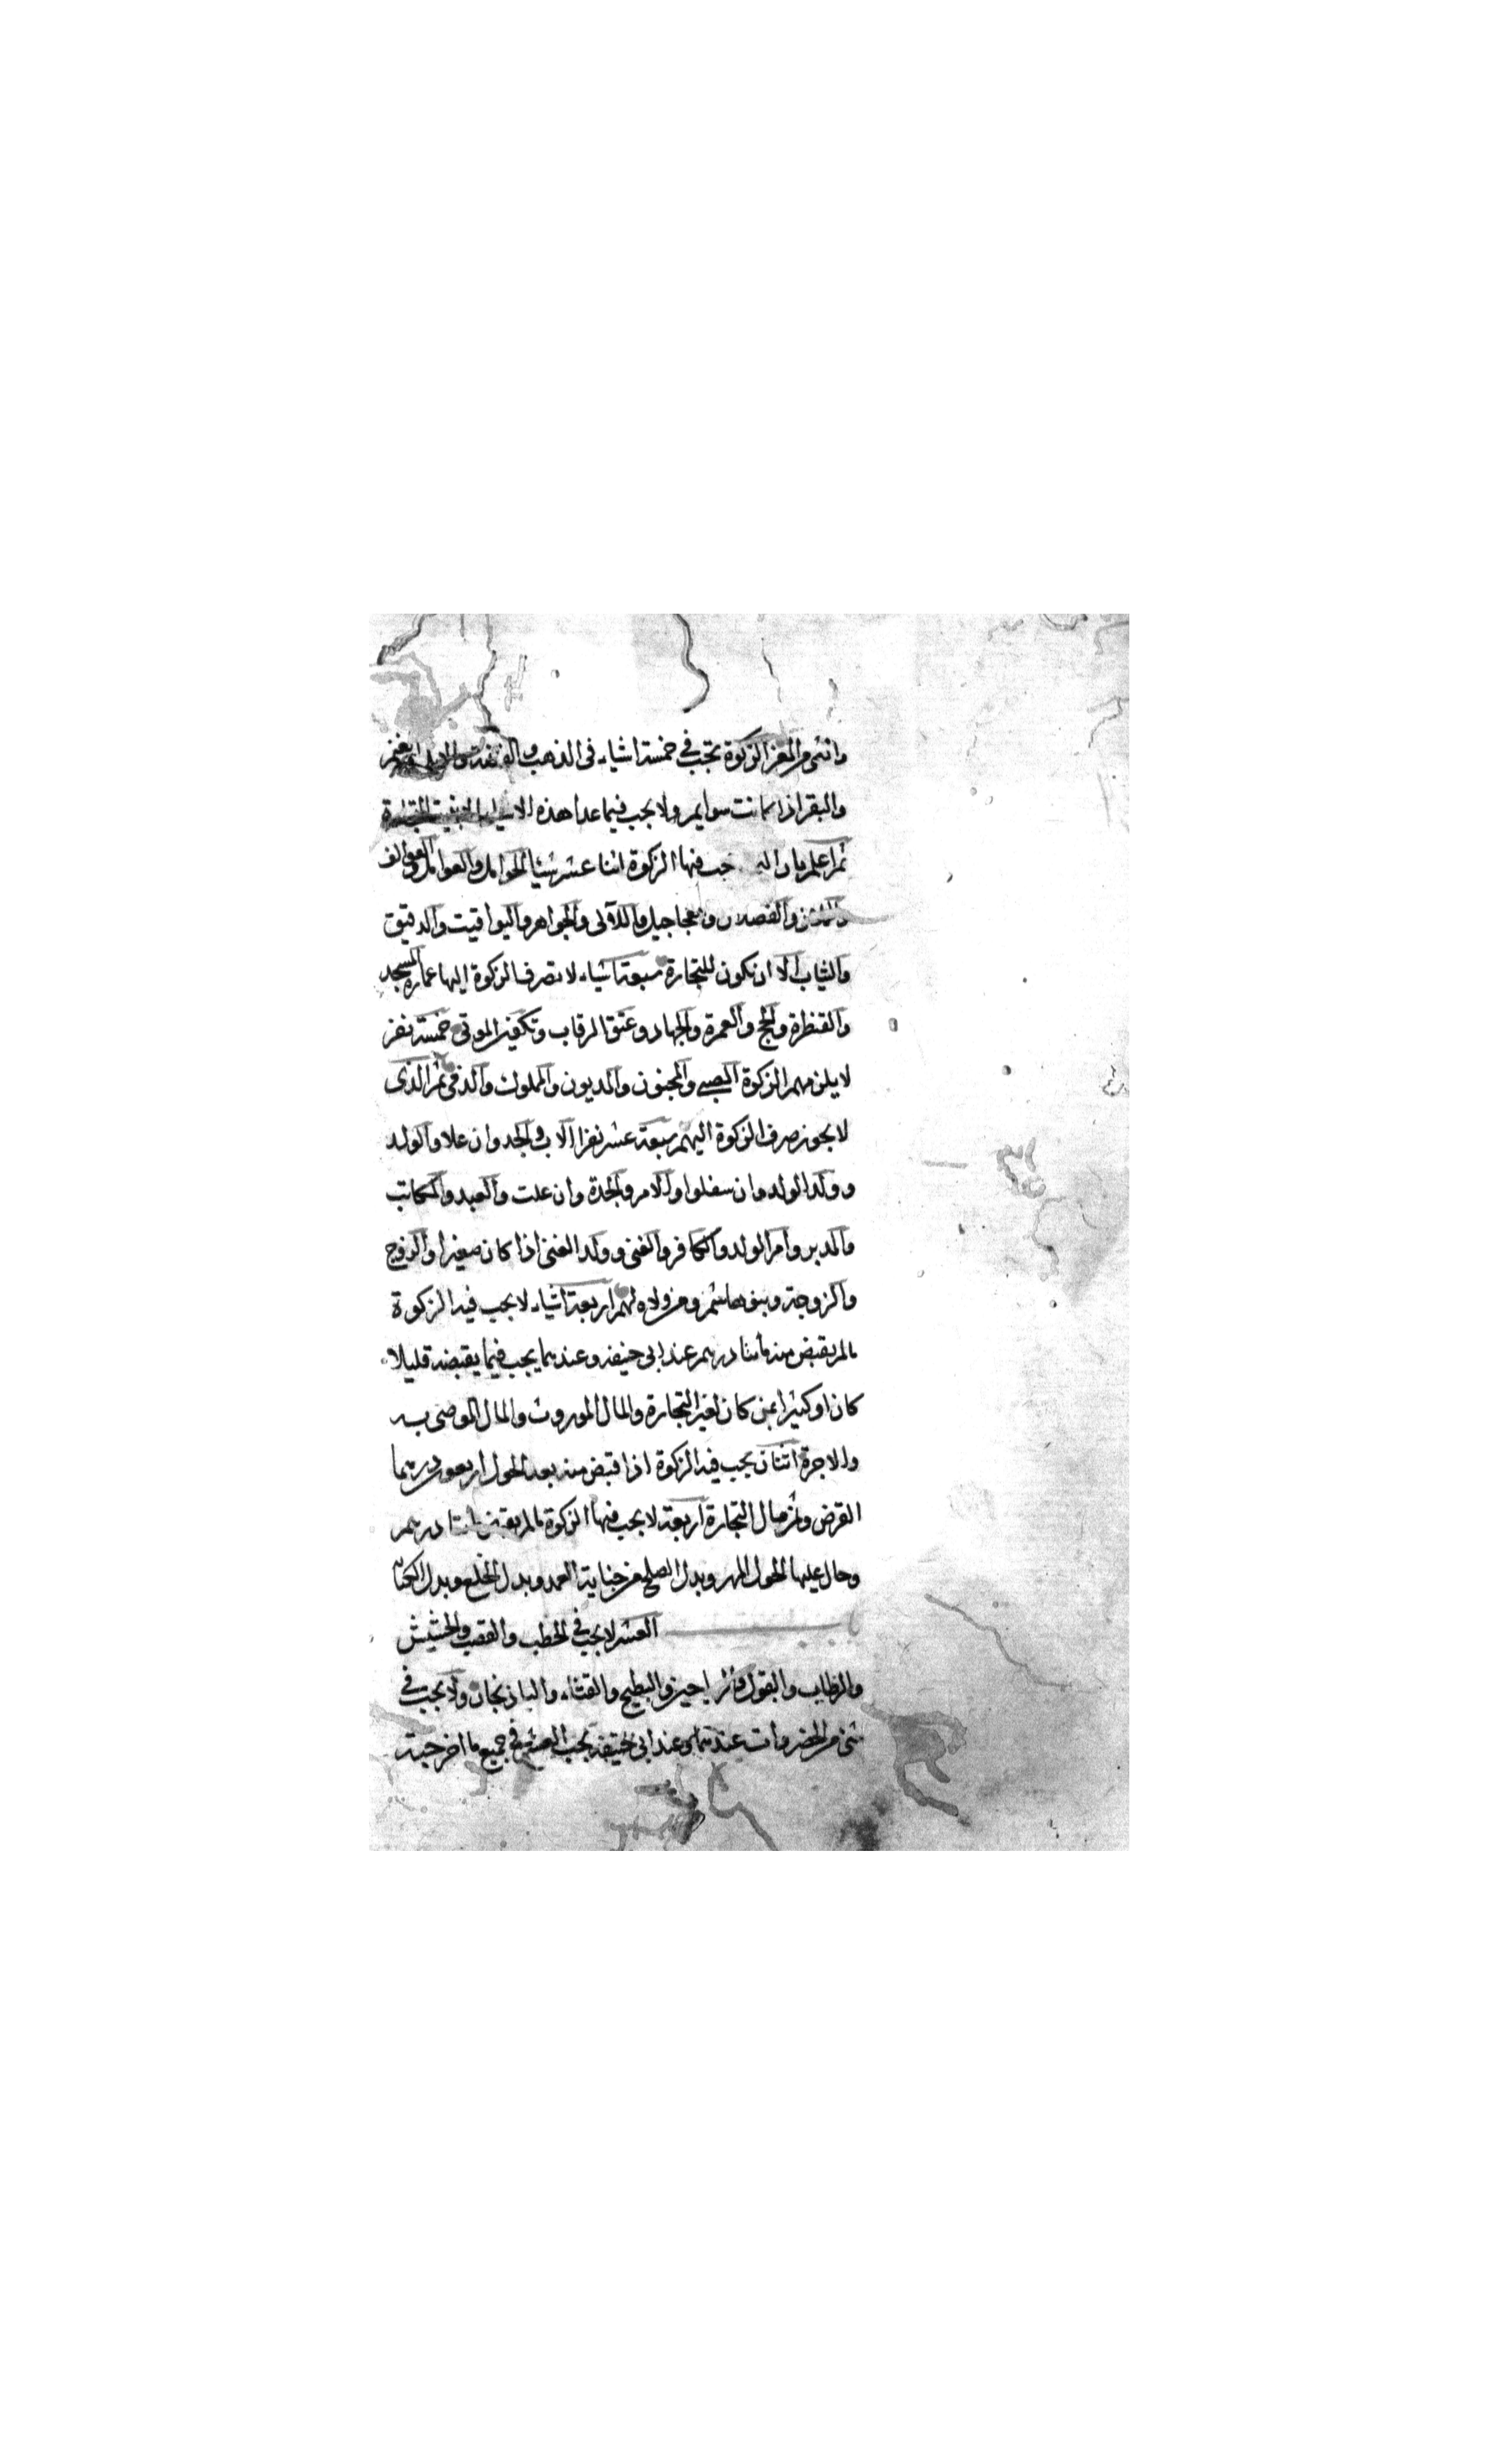 وانثى من المعز الزكوة تجب في خمسة اشياء في الذهب والفضة والابل والغنم
والبقر اذا كانت سوايم ولا يجب فيما عدا هذه الا بنية التجارة
ثم اعلم بان الـ جب فيها الزكوة اثنا عشر شيئا الحوامل والعوامل والعلوالف
والفصلان والعجاجيل واللآلى والجواهر واليواقيت والدقيق
والثياب الا ان تكون للتجارة سبعة اشياء لا تصرف الزكوة اليها عمارة المسجد
والقنطرة والحج والعمرة والجهاد وعتق الرقاب وتكفين الموتى خمسة نفر
لا يلزمهم الزكوة الصبي والمجنون والمديون والمملوك والذمي ثم الذى
لا يجوز صرف الزكوة اليهم سبعة عشر نفرا الاب والجد وان علا والولد
وولد الولد وان سفلوا والام والجدة وان علت والعبد والمكاتب
والمدبر وام الولد والكافر والغني وولد الغني اذا كان صغيرا والزوج
والزوجة وبنو هاشم ومن ولاه لهم اربعة اشياء لا يجب فيه الزكوة
مالم يقبض منه مائتا درهم عند ابى حنيفة وعندهما يجب فيما يقبضه قليلا
كان او كثيرا ثمن كان لغير التجارة والمال الموروث والمال الموصى به
والاجرة اثنان يجب فيه الزكوة اذا قبض منه بعد الحول اربعون درهما
القرض وثمن مال التجارة اربعة لا يجب فيها الزكوة مالم يقبض مائتا درهم
وحال عليها الحول المهر وبدل الصلح من جناية العمد وبدل الخلع وبدل الكتابة
العشر لا يجب في الحطب والقصب والحشيش
والرطاب والبقول والرياحين والبطيخ والقثاء والباذنجان ولا يجب في
شئ من الخضروات عندهما وعند ابى حنيفة يجب العشر في جميع ما اخرجته